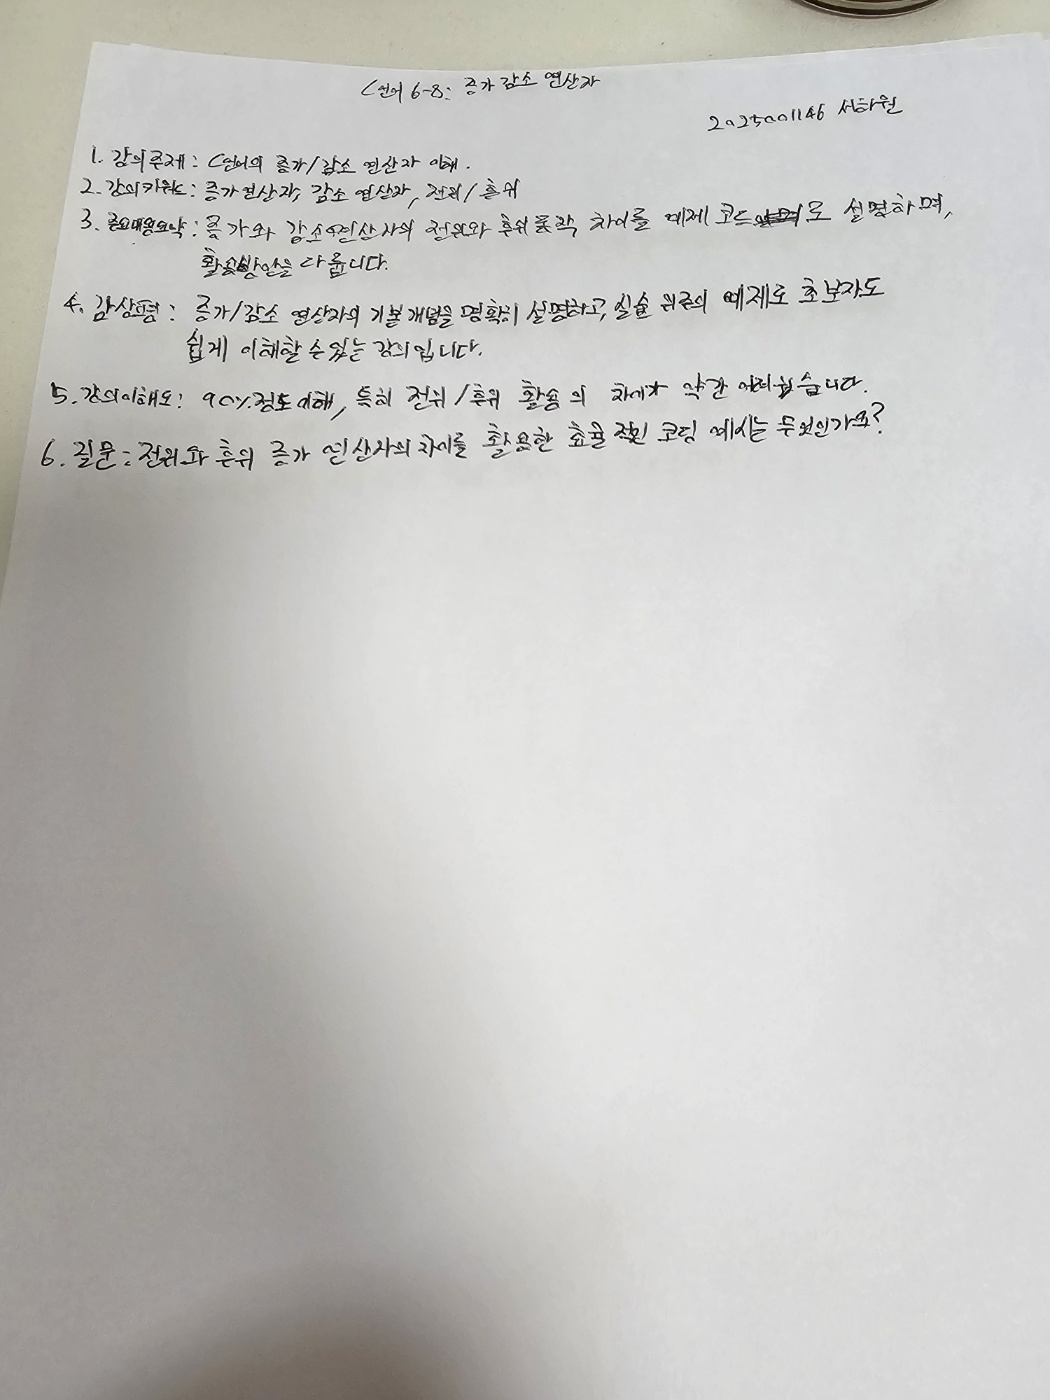 C언어 6-8: 증가 감소 연산자
2025001146 서하원
1. 강의주제: C언어의 증가/감소 연산자 이해.
2. 강의키워드: 증가연산자, 감소 연산자, 전위/후위
3. 중요내용요약: 증가와 감소연산자의 전위와 후위 동작 차이를 예제 코드로 설명하며,
활용방안을 다룹니다.
4. 감상평: 증가/감소 연산자의 기본개념을 명확히 설명하고, 실습 위주의 예제로 초보자도
쉽게 이해할 수 있는 강의입니다.
5. 강의이해도: 90%정도이해, 특히 전위/후위 활용의 차이가 약간 어려웠습니다.
6. 질문: 전위와 후위 증가 연산자의 차이를 활용한 효율적인 코딩 예시는 무엇인가요?